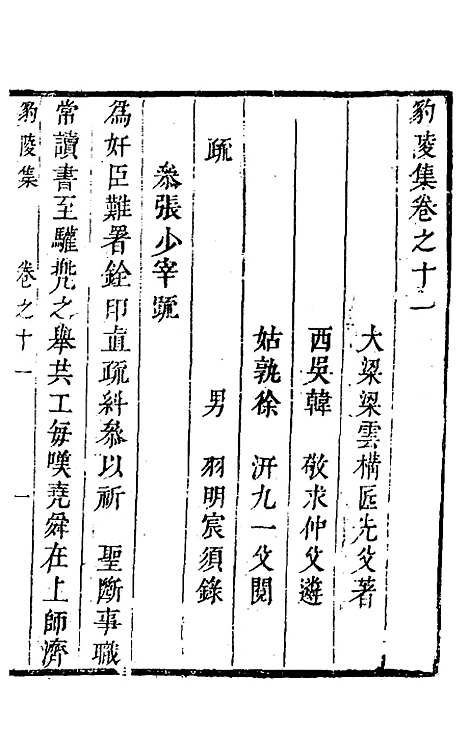 豹陵集卷之十一
大梁梁雲構匠先父著
西吳韓　敬求仲父選
姑孰徐　汧九一父閱
男　羽明宸須錄
疏
叅張少宰疏
爲奸臣難署銓印直疏糾叅以祈　聖斷事職
常讀書至驩兠之舉共工每嘆堯舜在上師濟
豹陵集　卷之十一　一